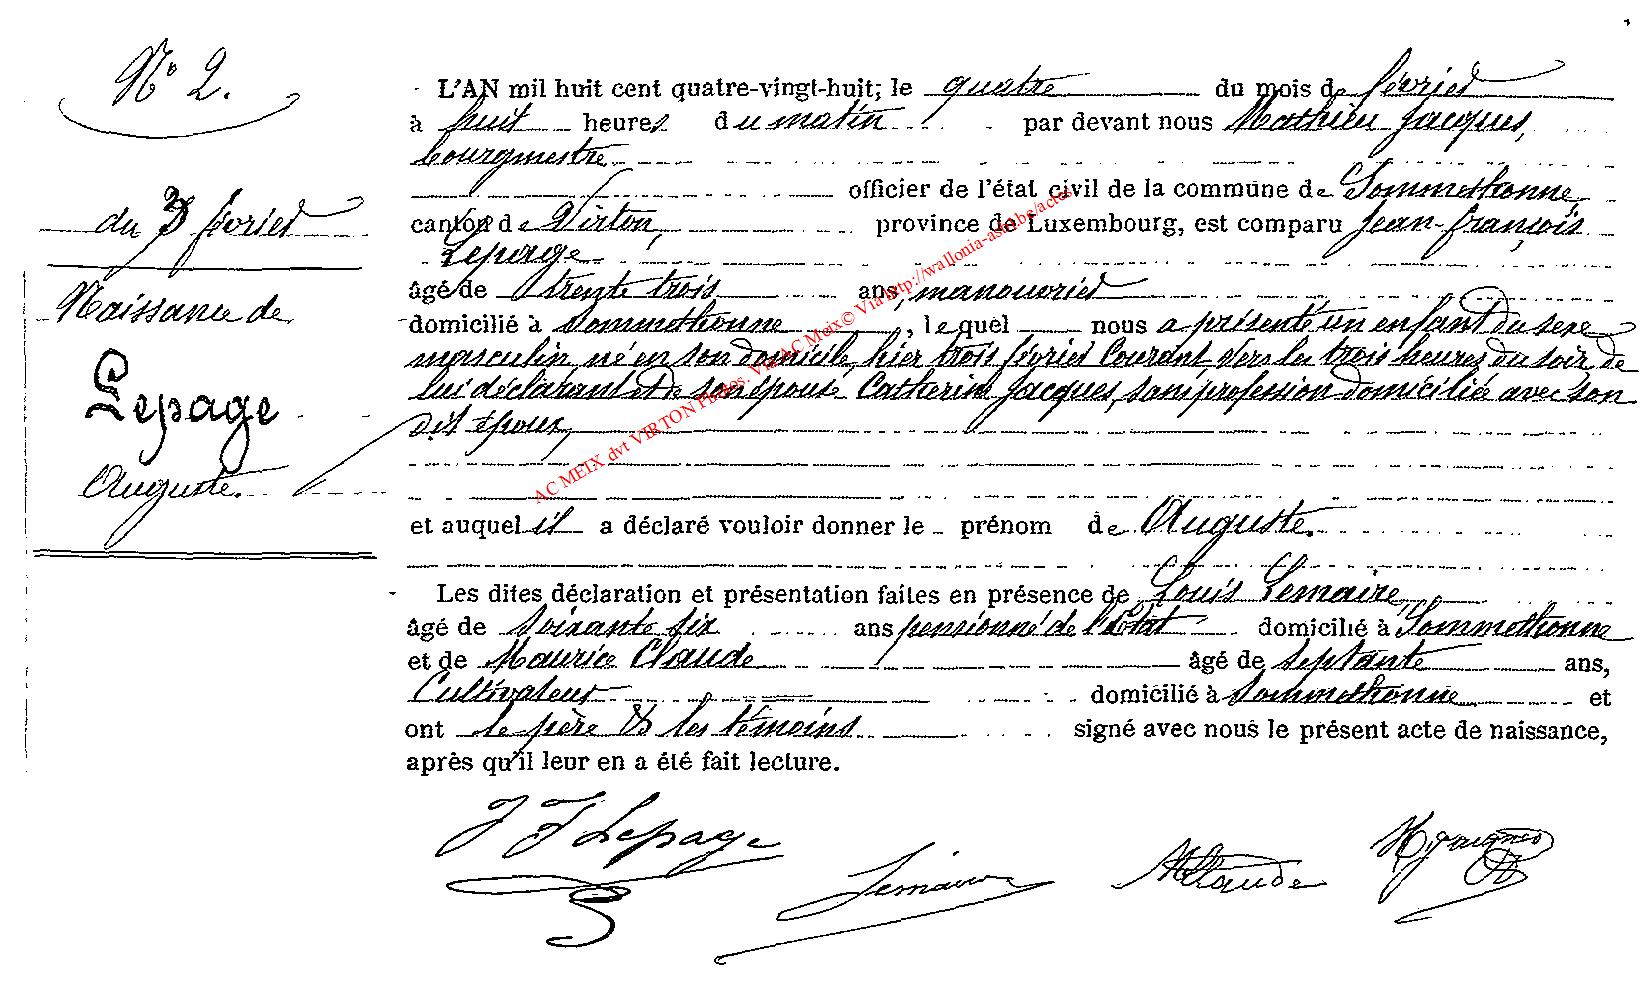 N° 2.
du 3 février
Naissance de
Lepage
Auguste.
L'AN mil huit cent quatre-vingt-huit; le quatre du mois de février
à huit heures du matin par devant nous Mathieu Jacques,
bourgmestre
officier de l'état civil de la commune de Sommethonne,
canton de Virton, province de Luxembourg, est comparu Jean-françois
Lepage
âgé de trente trois ans, manouvrier
domicilié à Sommethonne, lequel nous a présenté un enfant du sexe
masculin, né en son domicile, hier trois février Courant, vers les trois heures du soir, de
lui déclarant et de son épouse Catherine Jacques, sans profession domiciliée avec son
dit époux,
et auquel il a déclaré vouloir donner le prénom de Auguste.
Les dites déclaration et présentation faites en présence de Louis Lemaire,
âgé de soixante six ans pensionné de l'Etat domicilié à Sommethonne
et de Maurice Claude âgé de septante ans,
Cultivateur domicilié à Sommethonne et
ont le père & les témoins signé avec nous le présent acte de naissance,
après qu'il leur en a été fait lecture.
J F Lepage
Lemaire
M Claude
M Jacques
AC MEIX dvt VIRTON Via AC Meix© Via http://wallonia-asbl.be/actes